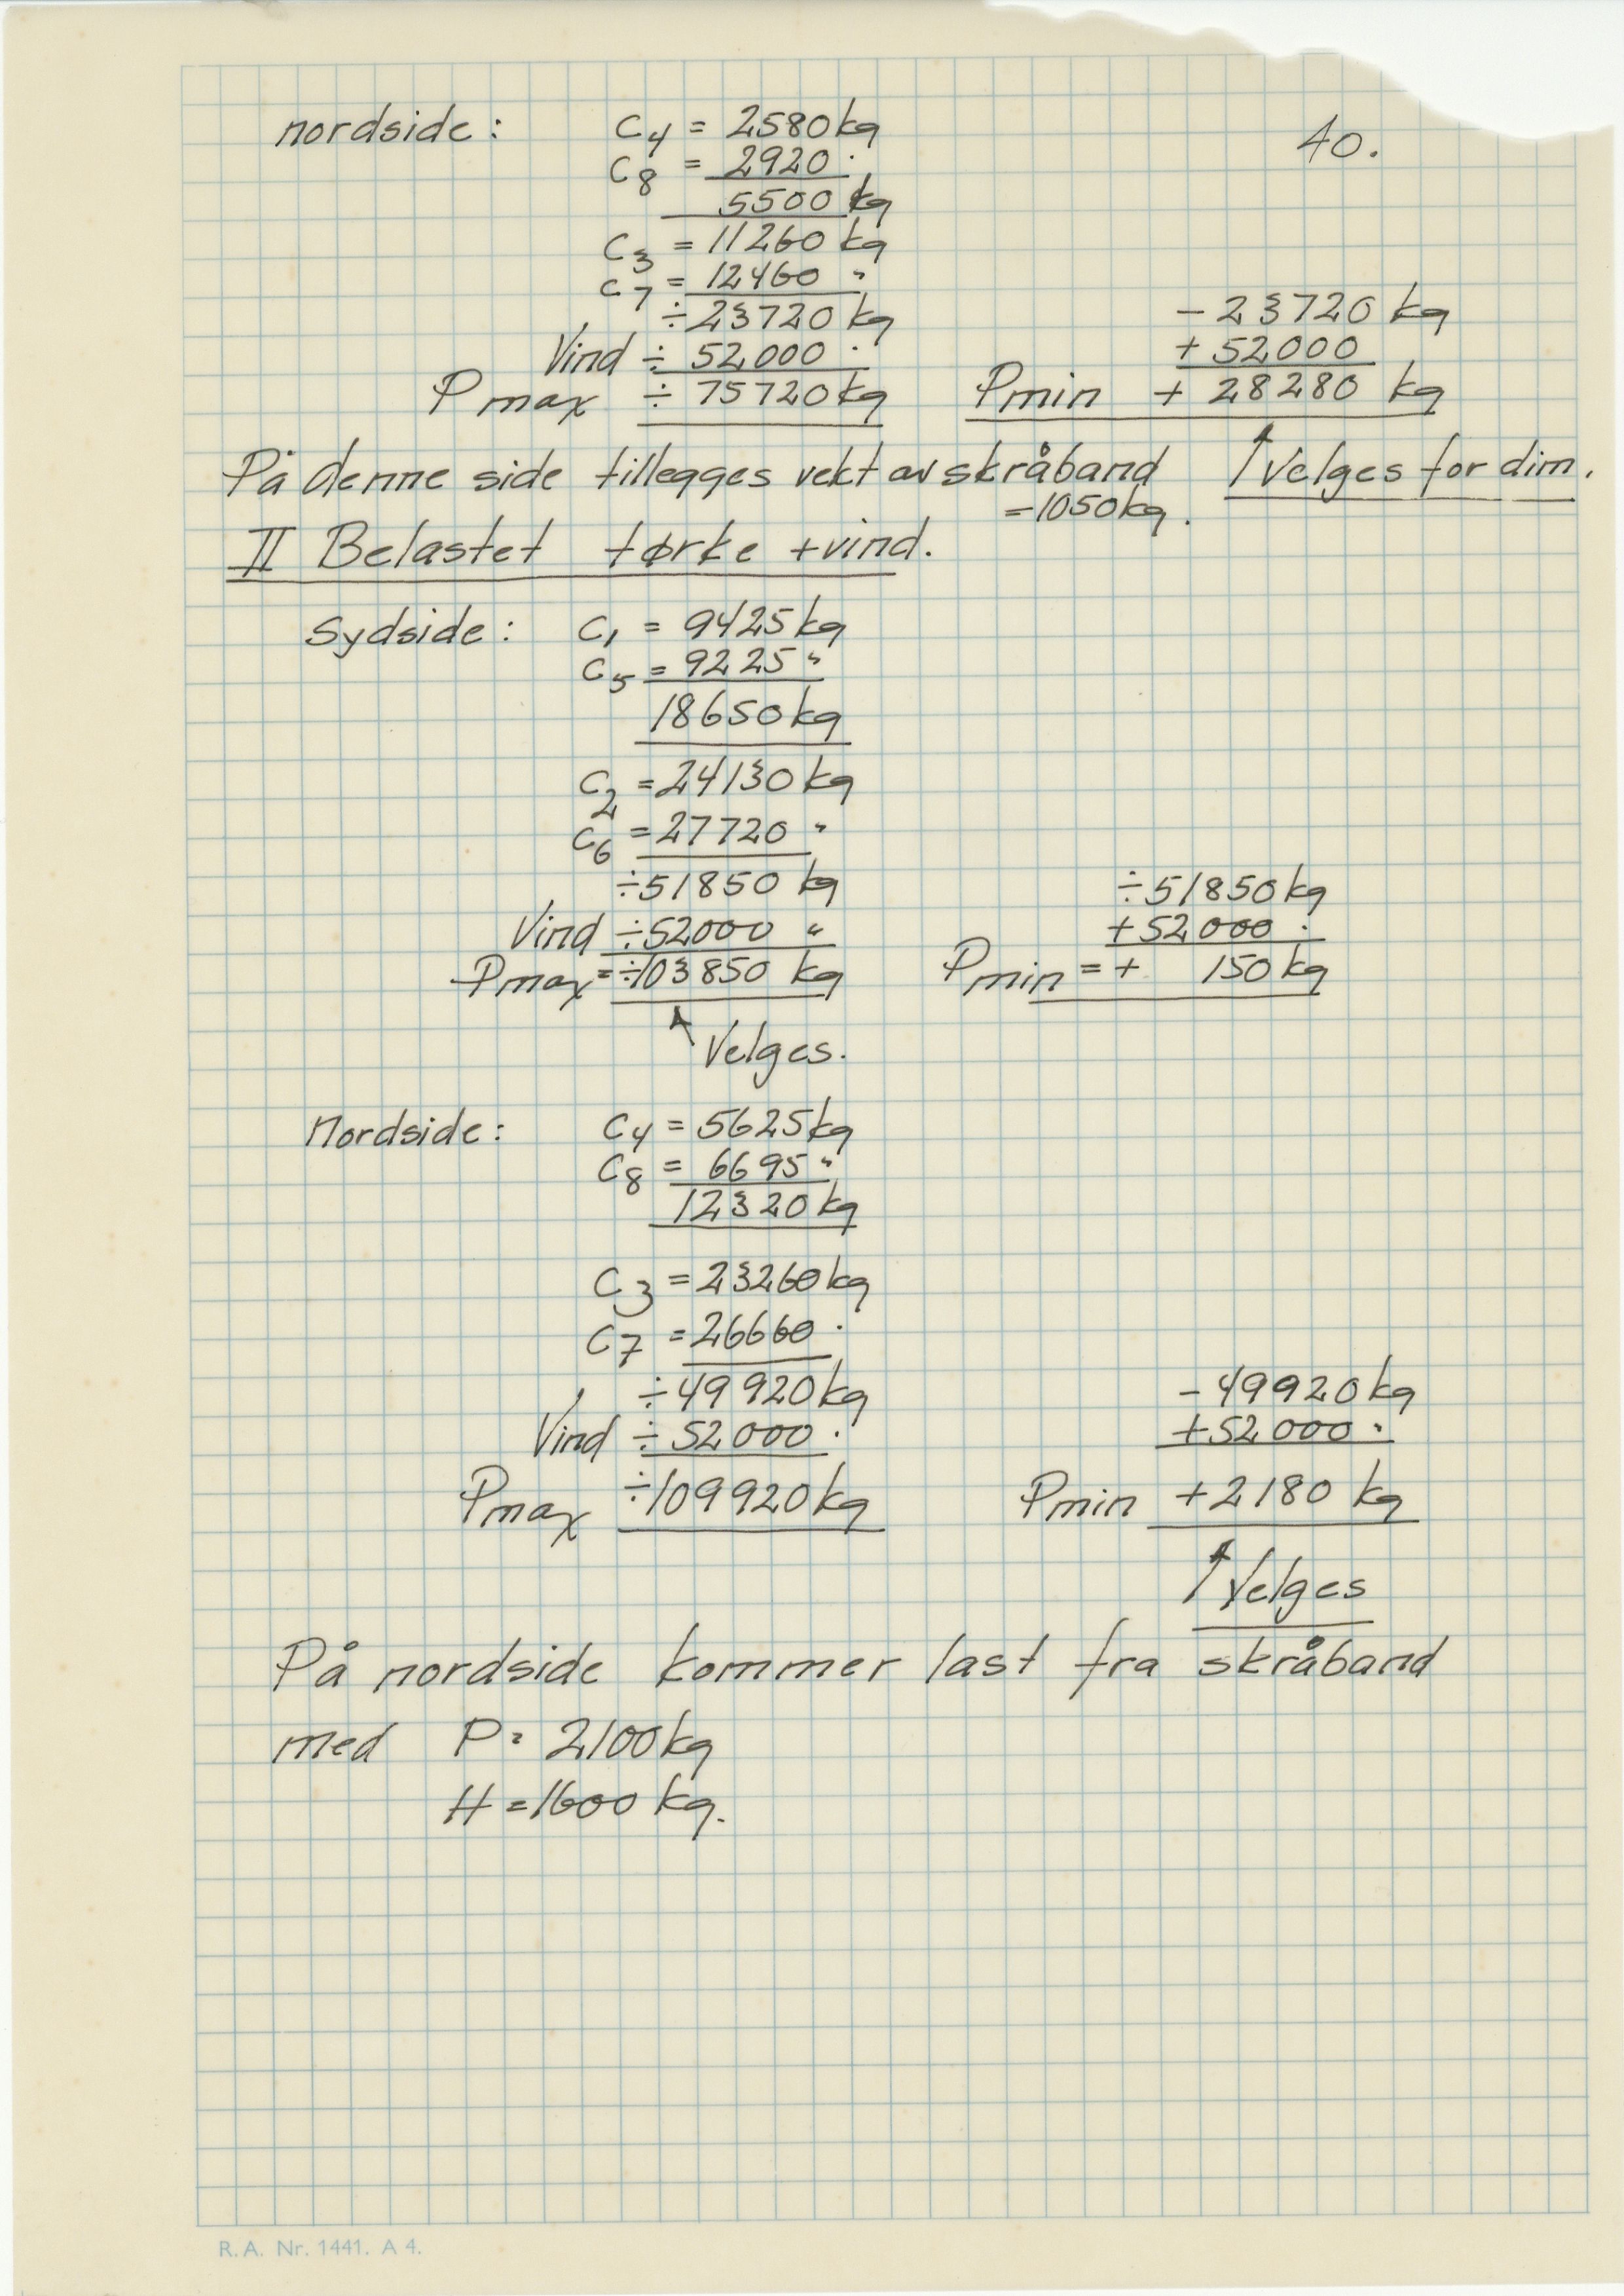 40.
nordside: C4 = 2580 kg
C8 = 2920 "
5500 kg
C3 = 11260 kg
C7 = 12460 "
÷23720 kg - 23720 kg
Vind ÷ 52000 " + 52000
Pmax ÷ 75720 kg Pmin + 28280 kg
På denne side tillegges vekt av skråband ↑ Velges for dim.
= 1050 kg.
II Belastet tørke + vind.
Sydside: C1 = 9425 kg
C5 = 9225 "
18650 kg
C2 = 24130 kg
C6 = 27720 "
÷51850 kg ÷51850 kg
Vind ÷52000 " +52000 "
Pmax = ÷103850 kg Pmin = + 150 kg
↑ Velges.
Nordside: C4 = 5625 kg
C8 = 6695 "
12320 kg
C3 = 23260 kg
C7 = 26660 "
÷49920 kg - 49920 kg
Vind ÷ 52000 " +52000 "
Pmax ÷109920 kg Pmin +2180 kg
↑ Velges
På nordside kommer last fra skråband
med P = 2100 kg
H = 1600 kg.
R.A. Nr. 1441. A 4.